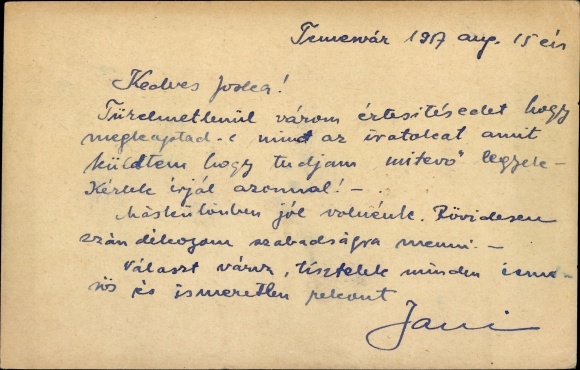 Temesvár 1917 aug. 15 én
Kedves Joska!
Türelmetlenül várom értesitésedet hogy
megkaptad-e mind az iratokat amit
küldtem hogy tudjam mitevő legyek-
Kérlek írjál azonnal! -
Máskülönben jól volnénk. Rövidesen
szándékozom szabadságra menni. -
Választ várva, tisztelek minden isme-
rős és ismeretlen rokont
Jani